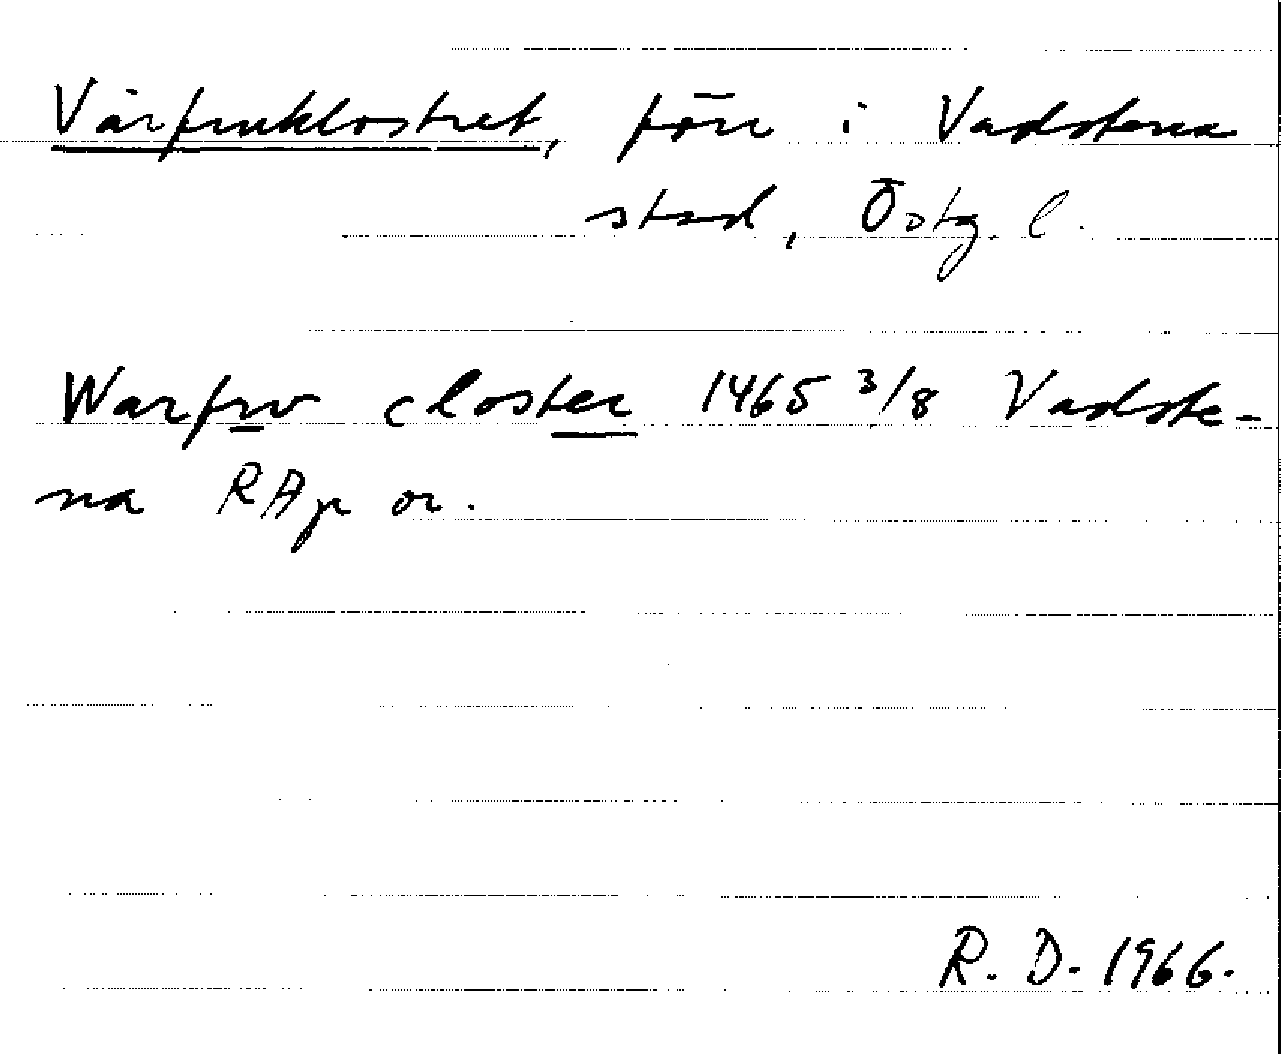 Vårfruklostret, förr i Vadstena
stad, Östg. l.
Warfrw closter 1465 3/8 Vadste-
na RAp or.
R. D. 1966.